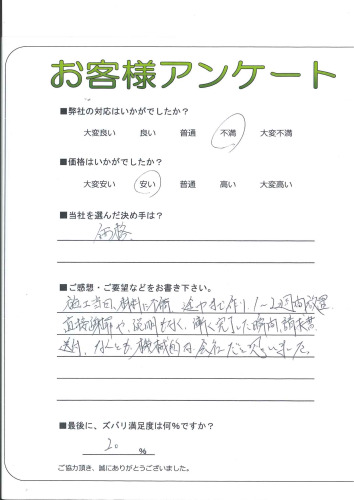 お客様アンケート
■弊社の対応はいかがでしたか?
大変良い 良い 普通 不満 大変不満
■価格はいかがでしたか?
大変安い 安い 普通 高い 大変高い
■当社を選んだ決め手は?
価格
■ご感想・ご要望などをお書き下さい。
施工当日、材料に不備、途中まで作り、1〜2週間放置
直接謝罪や、説明もなく、漸く完了した瞬間、請求書
送付、なんとも機械的な会社だと思いました。
■最後に、ズバリ満足度は何%ですか?
20 %
ご協力頂き、誠にありがとうございました。